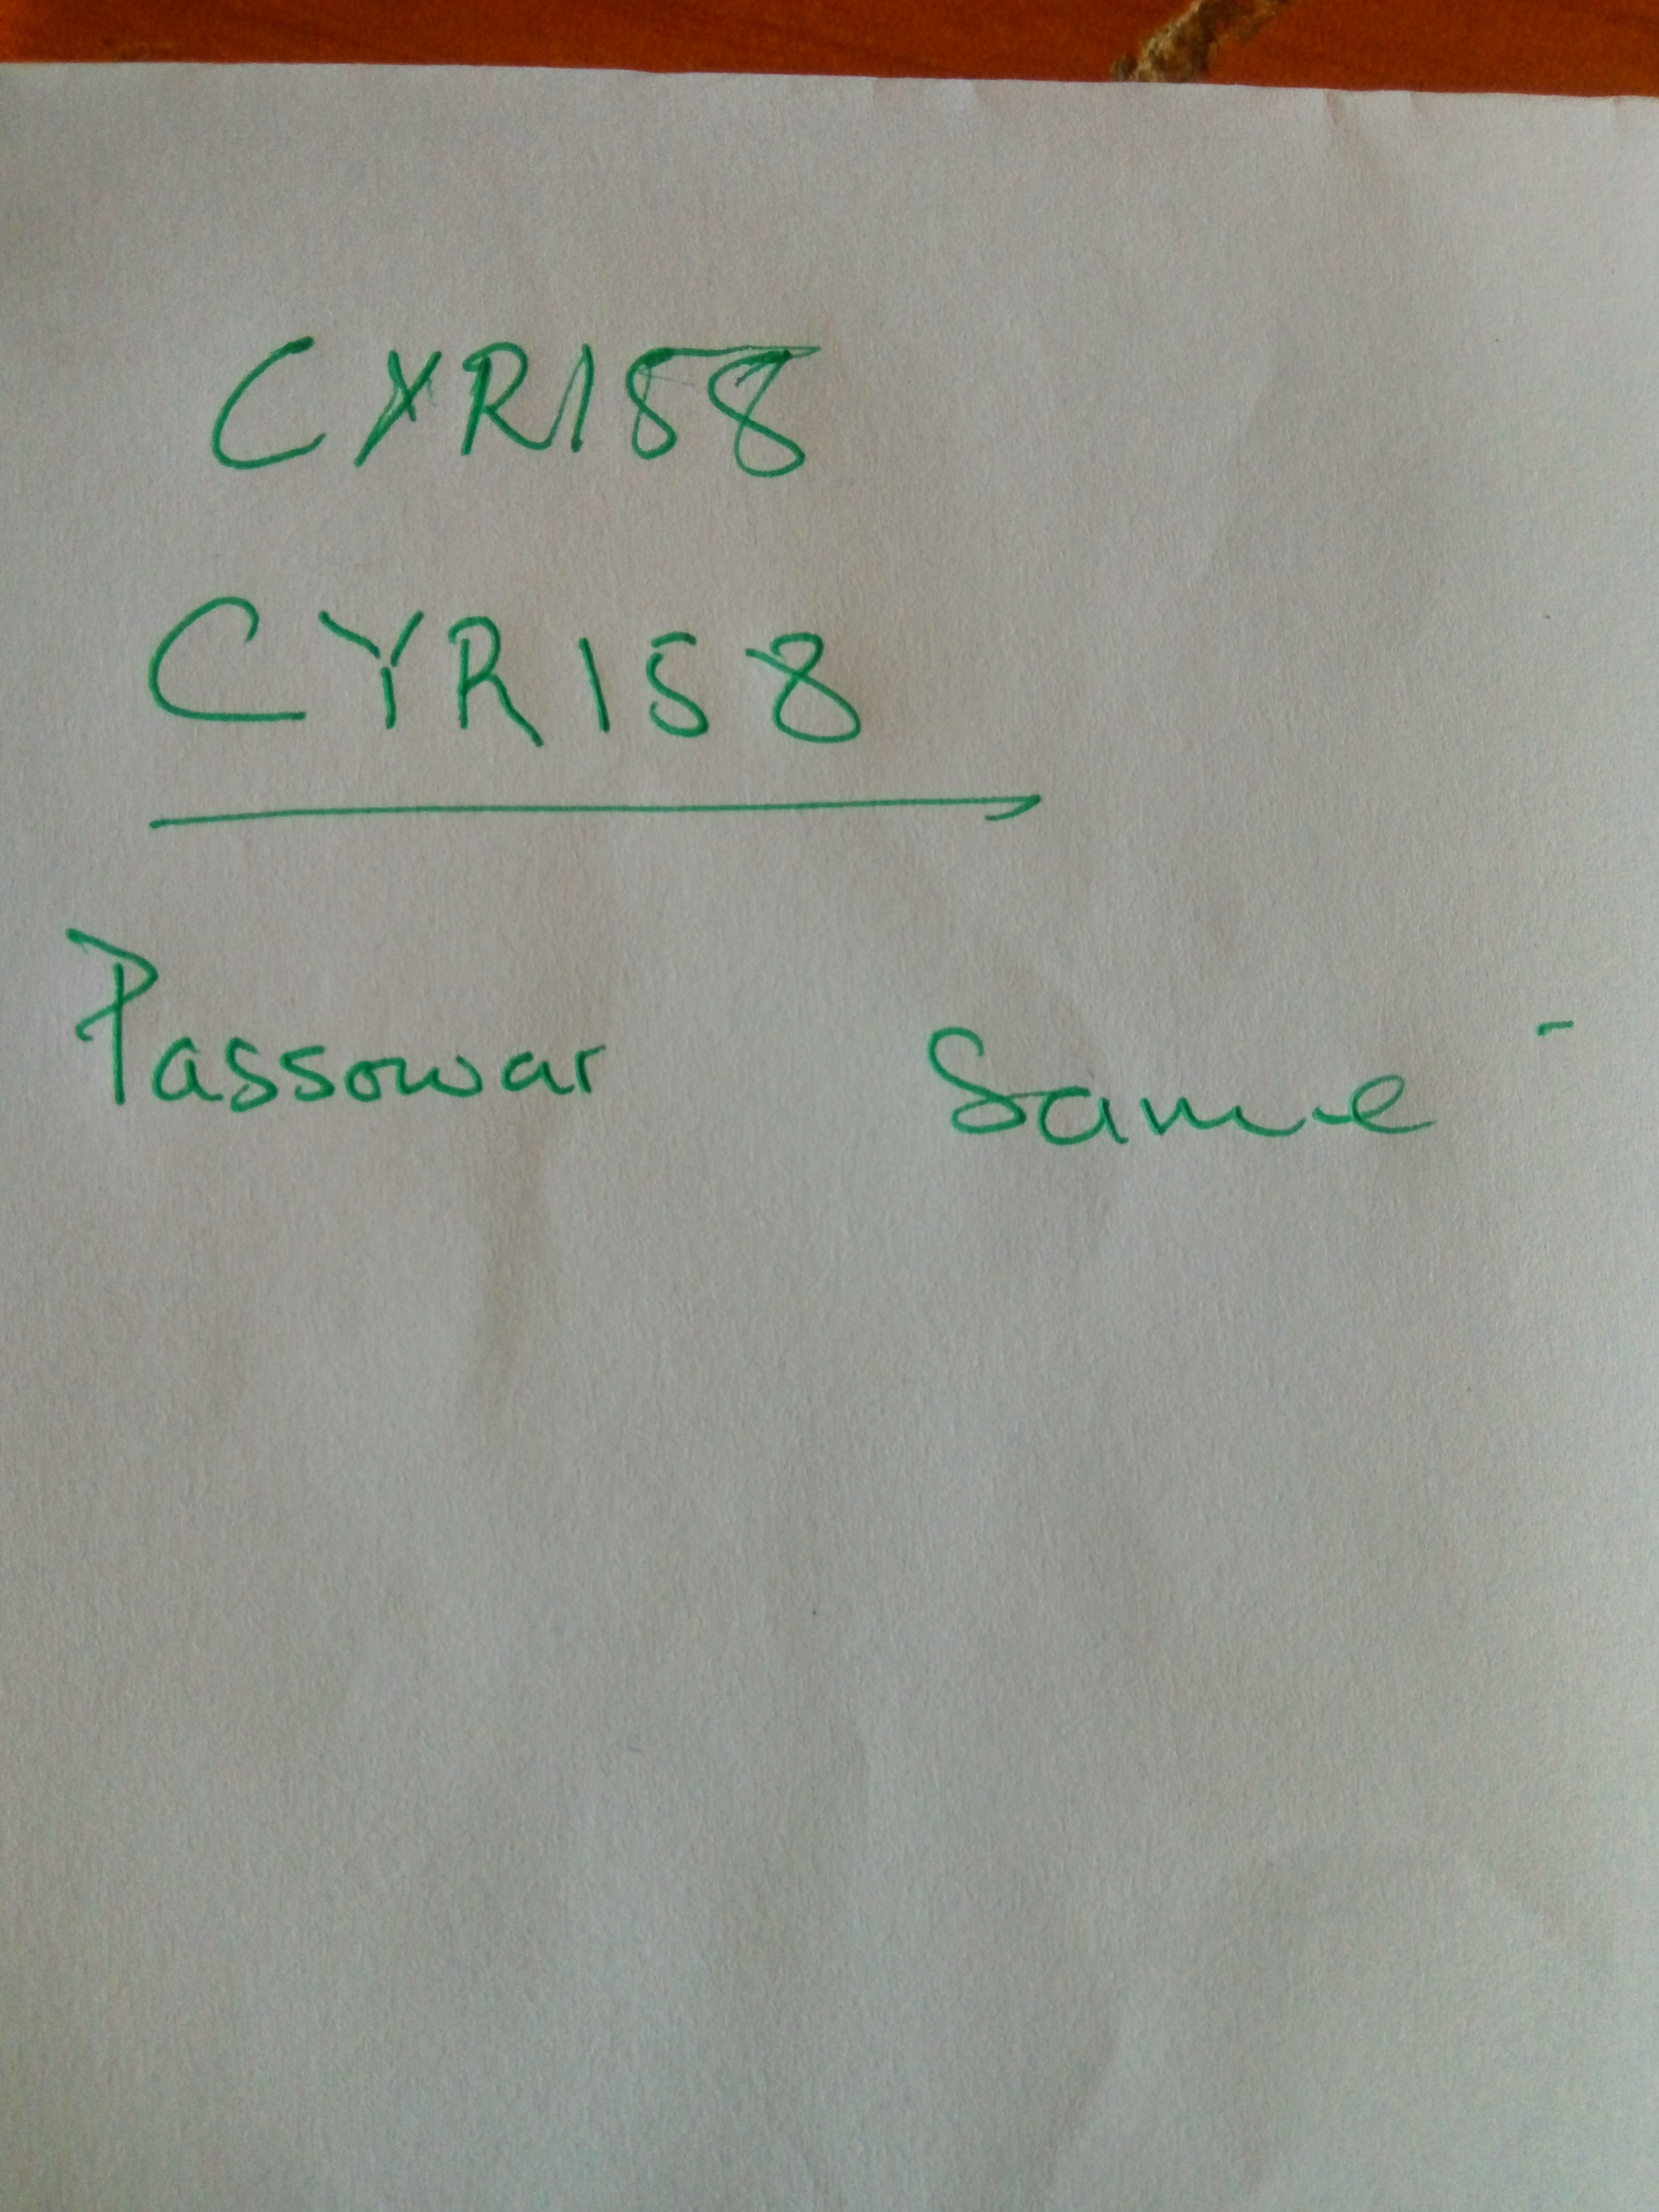 CYR158
CYR158
Passowar Same -